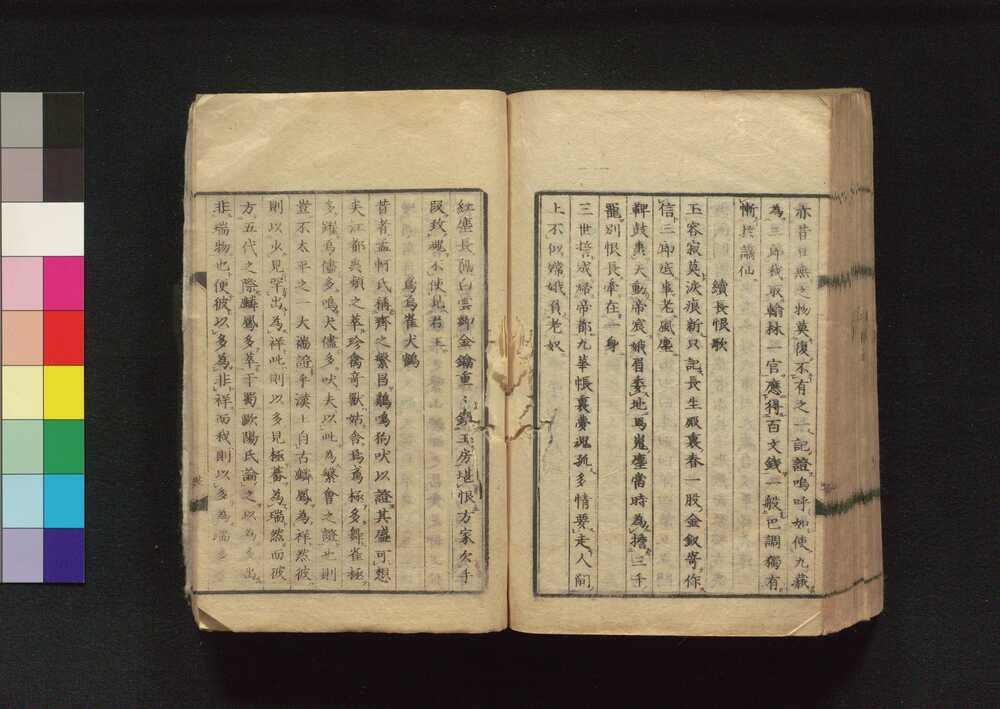 亦昔日無之物莫復不有之一記證嗚呼如使九齡
為三郎我取翰林一官應得百文錢一般巴調獨有
慚真謫仙
續長恨歌
玉容寂莫淚痕新只記長生殿裏春一股金釵寄你
信三郎底事老風塵
鞞鼓轟天動帝宸娥眉委地馬嵬塵當時為擔三千
寵別恨長牽在一身
三世誓成歸帝都九華帳裏夢魂孤多情要走人間
上不似嫦娥負老奴
紅塵長隔白雲鄉金鑰重〻鎖玉房堪恨方家欠手
段致魂不使見君王
烏鳶雀犬鶴
昔者孟軻氏稱齊之繁昌鷄鳴狗吠以證其盛可想
矣江都之萃珍禽奇獸姑舍烏鳶極多舞雀極
多躍烏儘多鳴犬儘多吠夫以此為繁會之證也則
豈不太平之一大端證乎漢土自古麟鳳為祥然彼
則以少見罕出為祥此則以多見極蕃為瑞然而彼
方五代之際麟鳳多萃于蜀歐陽氏論之以為多出
非瑞物也便彼以多為非祥而我則以多為瑞